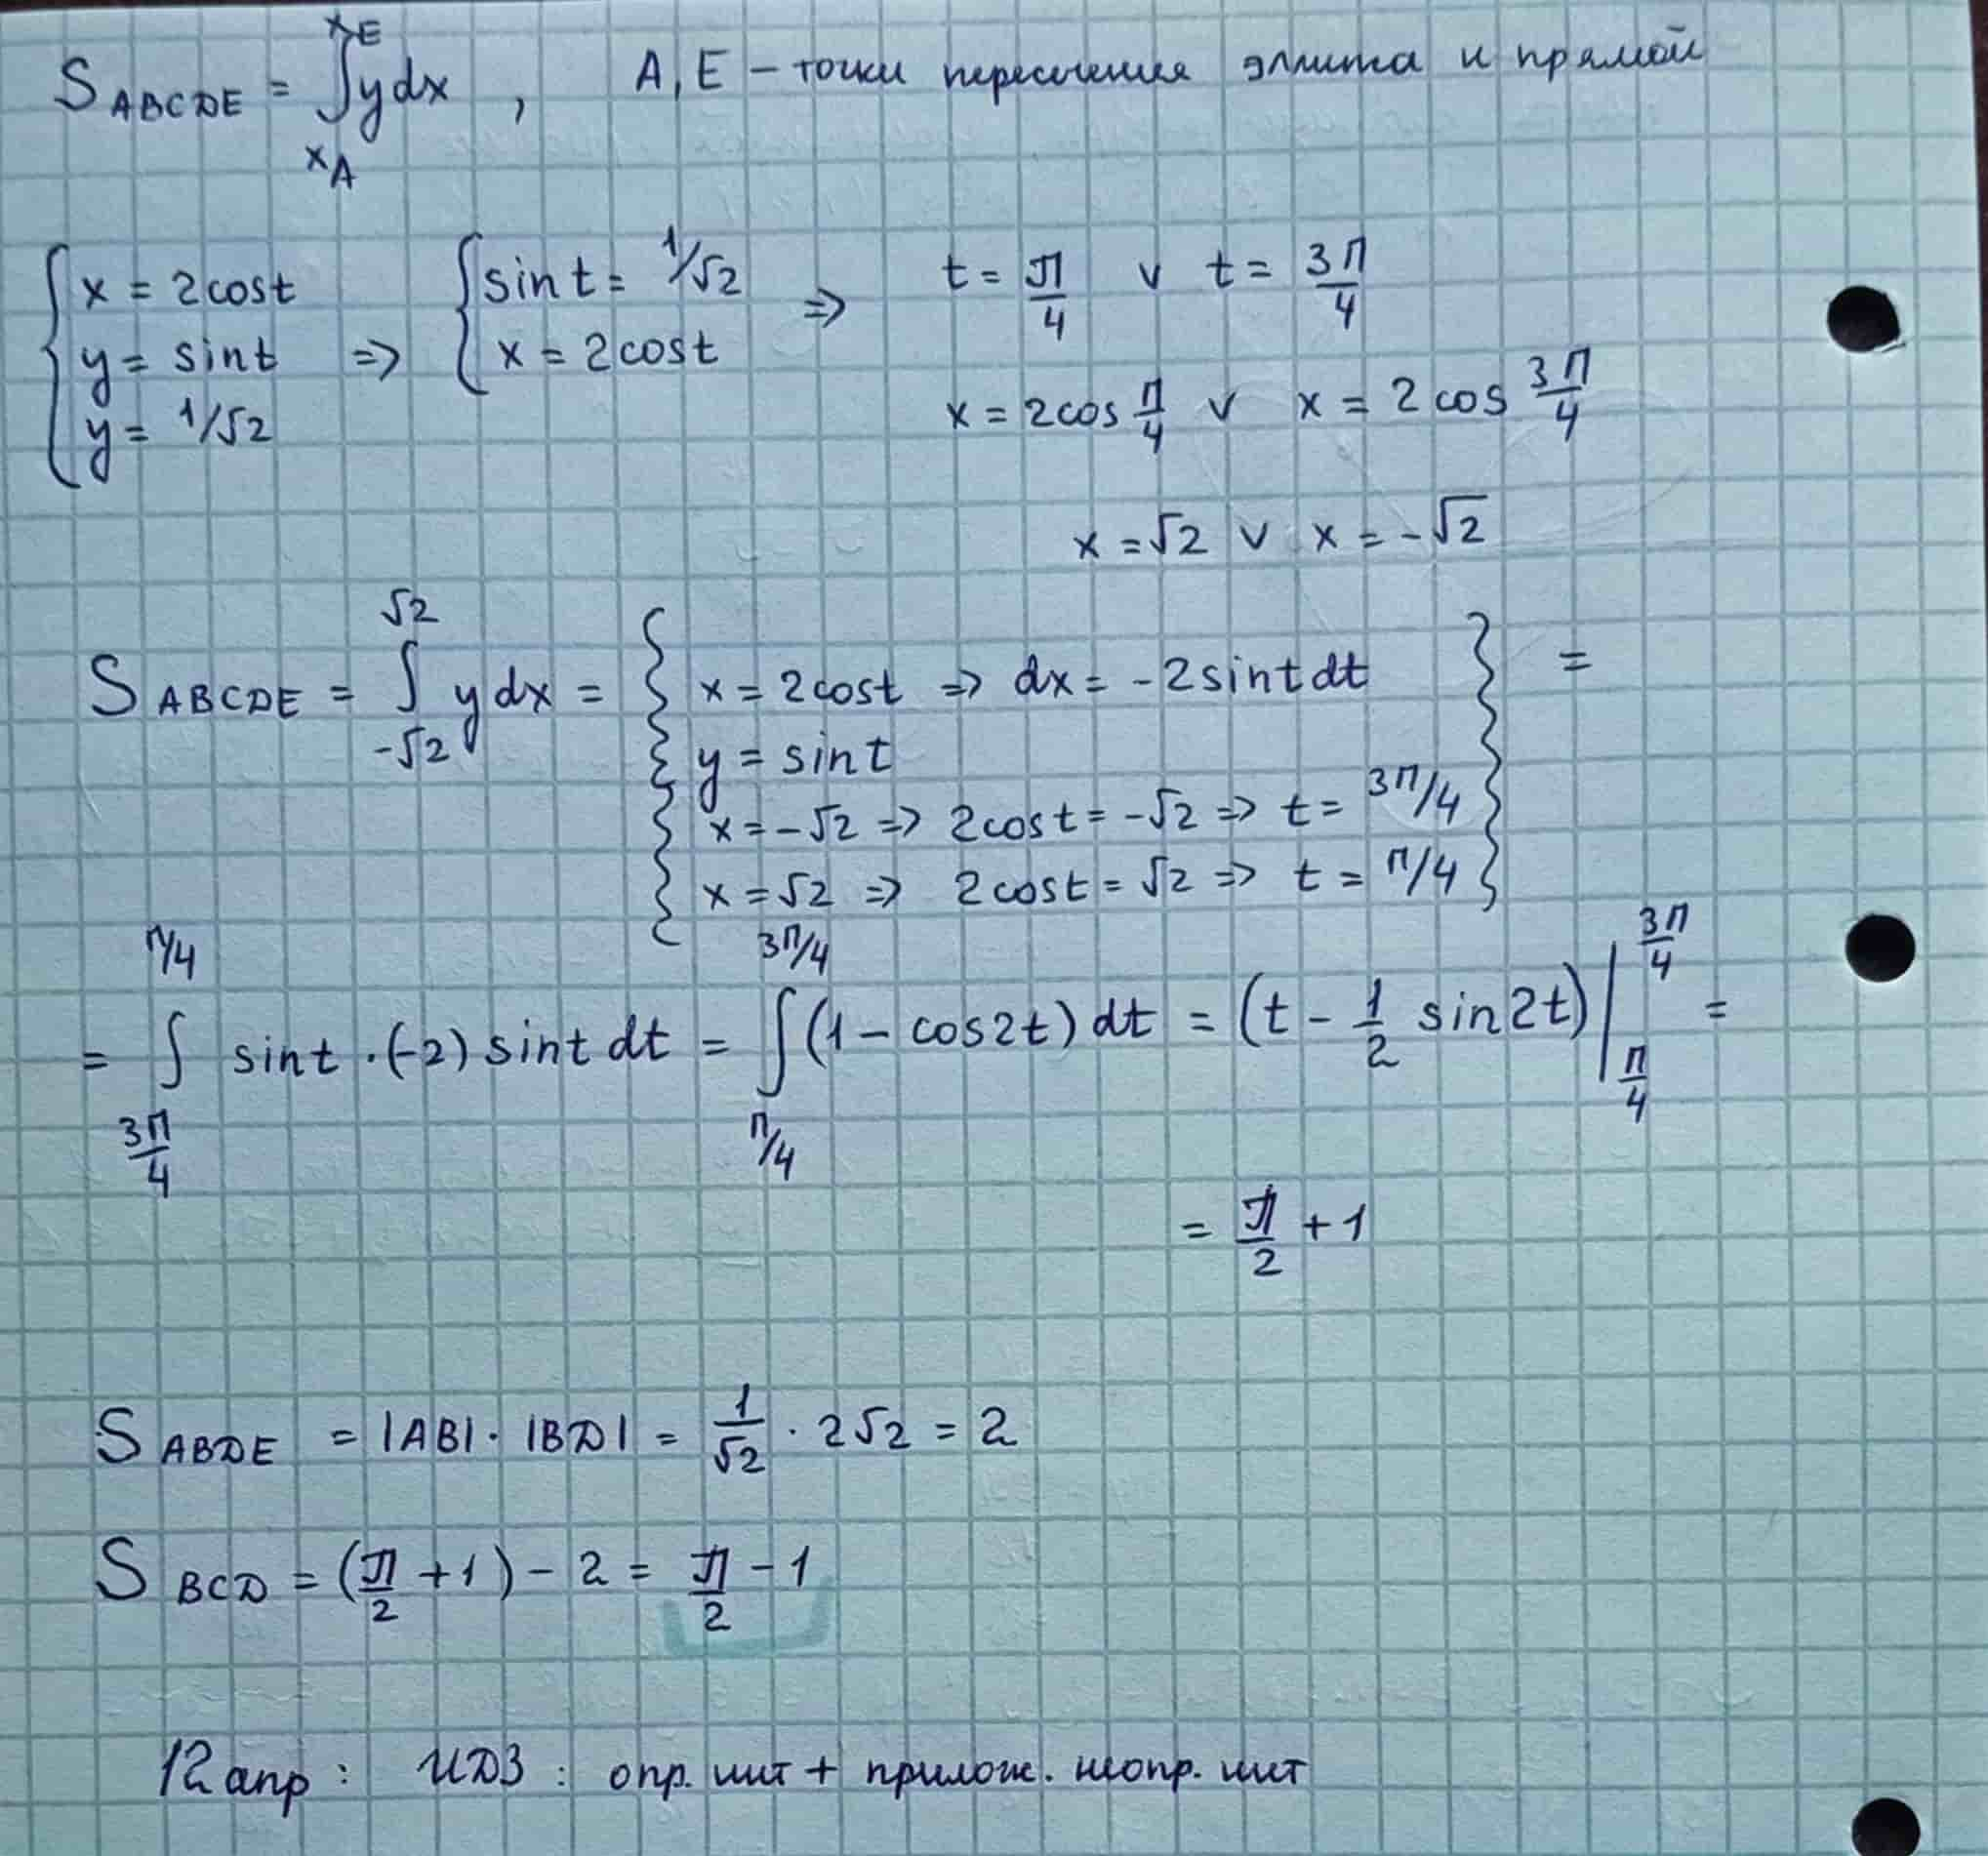 S_ABCDE = ∫_{x_A}^{x_E} y dx , A, E – точки пересечения эллипса и прямой
{ x = 2cost
y = sint
y = 1/√2 => { sint = 1/√2
x = 2cost => t = π/4 ∨ t = 3π/4
x = 2cos π/4 ∨ x = 2cos 3π/4
x = √2 ∨ x = -√2
S_ABCDE = ∫_{-√2}^{√2} y dx = { x = 2cost => dx = -2sintdt } =
y = sint
x = -√2 => 2cost = -√2 => t = 3π/4
x = √2 => 2cost = √2 => t = π/4
= ∫_{3π/4}^{π/4} sint · (-2) sint dt = ∫_{π/4}^{3π/4} (1 - cos2t) dt = (t - 1/2 sin2t) |_{π/4}^{3π/4} =
= π/2 + 1
S_ABDE = |AB| · |BD| = 1/√2 · 2√2 = 2
S_BCD = (π/2 + 1) - 2 = π/2 - 1
12 апр : ИДЗ : опр. инт + прилож. неопр. инт